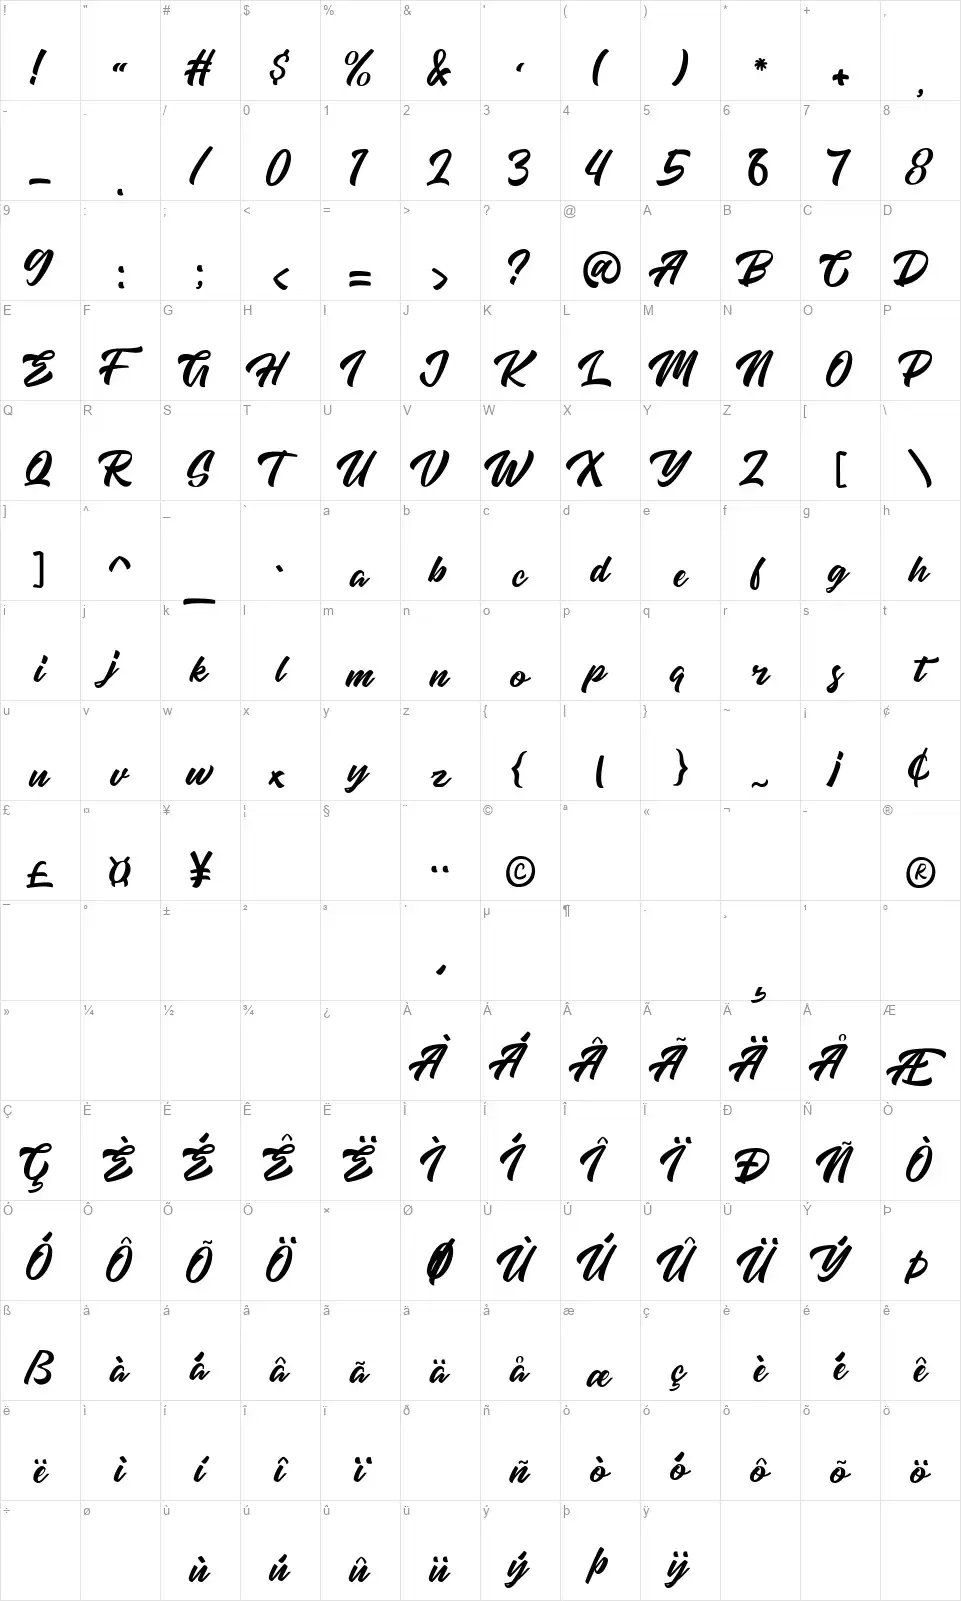 ! " # $ % & ' ( ) * + ,
! “ # $ % & ‘ ( ) * + ,
- . / 0 1 2 3 4 5 6 7 8
- . / 0 1 2 3 4 5 6 7 8
9 : ; < = > ? @ A B C D
9 : ; < = > ? @ A B C D
E F G H I J K L M N O P
E F G H I J K L M N O P
Q R S T U V W X Y Z [ \
Q R S T U V W X Y Z [ \
] ^ _ ` a b c d e f g h
] ^ _ ` a b c d e f g h
i j k l m n o p q r s t
i j k l m n o p q r s t
u v w x y z { | } ~ ¡ ¢
u v w x y z { | } ~ ¡ ¢
£ ¤ ¥ ¦ § ¨ © ª « ¬ - ®
£ ¤ ¥ ¨ © ®
¯ ° ± ² ³ ´ µ ¶ · ¸ ¹ º
´ ¸
» ¼ ½ ¾ ¿ À Á Â Ã Ä Å Æ
À Á Â Ã Ä Å Æ
Ç È É Ê Ë Ì Í Î Ï Ð Ñ Ò
Ç È É Ê Ë Ì Í Î Ï Ð Ñ Ò
Ó Ô Õ Ö × Ø Ù Ú Û Ü Ý Þ
Ó Ô Õ Ö Ø Ù Ú Û Ü Ý Þ
ß à á â ã ä å æ ç è é ê
ß à á â ã ä å æ ç è é ê
ë ì í î ï ð ñ ò ó ô õ ö
ë ì í î ï ñ ò ó ô õ ö
÷ ø ù ú û ü ý þ ÿ
ù ú û ü ý þ ÿ